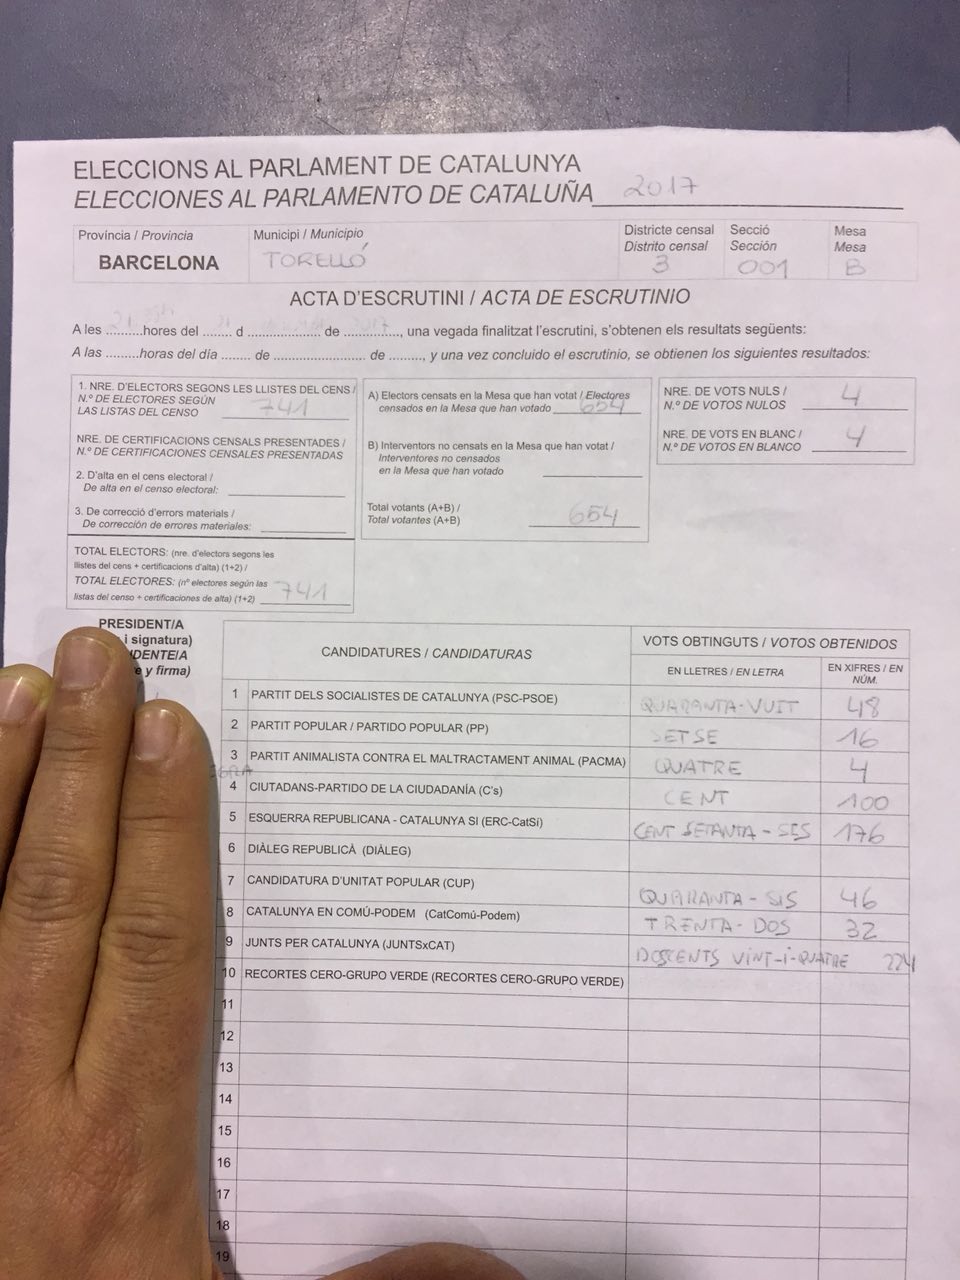 ELECCIONS AL PARLAMENT DE CATALUNYA
ELECCIONES AL PARLAMENTO DE CATALUÑA 2017
Província / Provincia
BARCELONA
Municipi / Municipio
TORELLÓ
Districte censal
Distrito censal
3
Secció
Sección
001
Mesa
Mesa
B
ACTA D'ESCRUTINI / ACTA DE ESCRUTINIO
A les 21 hores del 21 d de 2017, una vegada finalitzat l'escrutini, s'obtenen els resultats següents:
A las .........horas del día ........ de ....................... de ........, y una vez concluido el escrutinio, se obtienen los siguientes resultados:
1. NRE. D'ELECTORS SEGONS LES LLISTES DEL CENS /
N.º DE ELECTORES SEGÚN
LAS LISTAS DEL CENSO 741
NRE. DE CERTIFICACIONS CENSALS PRESENTADES /
N.º DE CERTIFICACIONES CENSALES PRESENTADAS
2. D'alta en el cens electoral /
De alta en el censo electoral:
3. De correcció d'errors materials /
De corrección de errores materiales:
TOTAL ELECTORS: (nre. d'electors segons les
llistes del cens + certificacions d'alta) (1+2) /
TOTAL ELECTORES: (nº electores según las
listas del censo + certificaciones de alta) (1+2) 741
A) Electors censats en la Mesa que han votat / Electores
censados en la Mesa que han votado 654
B) Interventors no censats en la Mesa que han votat /
Interventores no censados
en la Mesa que han votado
Total votants (A+B) /
Total votantes (A+B) 654
NRE. DE VOTS NULS /
N.º DE VOTOS NULOS 4
NRE. DE VOTS EN BLANC /
N.º DE VOTOS EN BLANCO 4
PRESIDENT/A
i signatura)
DENTE/A
y firma)
CANDIDATURES / CANDIDATURAS
VOTS OBTINGUTS / VOTOS OBTENIDOS
EN LLETRES / EN LETRA
EN XIFRES / EN NÚM.
1 PARTIT DELS SOCIALISTES DE CATALUNYA (PSC-PSOE) QUARANTA-VUIT 48
2 PARTIT POPULAR / PARTIDO POPULAR (PP) SETSE 16
3 PARTIT ANIMALISTA CONTRA EL MALTRACTAMENT ANIMAL (PACMA) QUATRE 4
4 CIUTADANS-PARTIDO DE LA CIUDADANÍA (C's) CENT 100
5 ESQUERRA REPUBLICANA - CATALUNYA SI (ERC-CatSí) CENT SETANTA-SIS 176
6 DIÀLEG REPUBLICÀ (DIÀLEG)
7 CANDIDATURA D'UNITAT POPULAR (CUP) QUARANTA-SIS 46
8 CATALUNYA EN COMÚ-PODEM (CatComú-Podem) TRENTA-DOS 32
9 JUNTS PER CATALUNYA (JUNTSxCAT) DOSCENTS VINT-I-QUATRE 224
10 RECORTES CERO-GRUPO VERDE (RECORTES CERO-GRUPO VERDE)
11
12
13
14
15
16
17
18
19